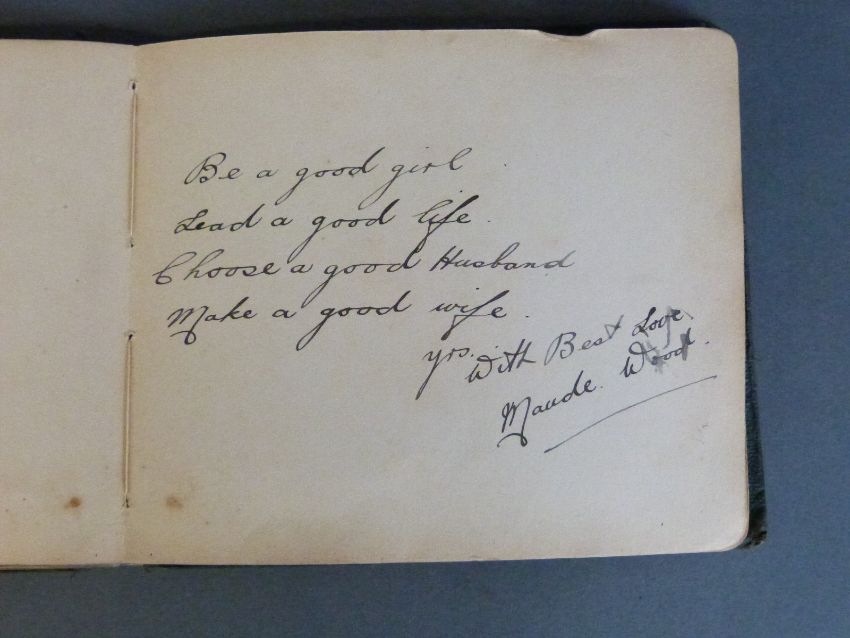 Be a good girl.
Lead a good life.
Choose a good Husband
Make a good wife.
yrs. With Best Love
Maude. Wood.